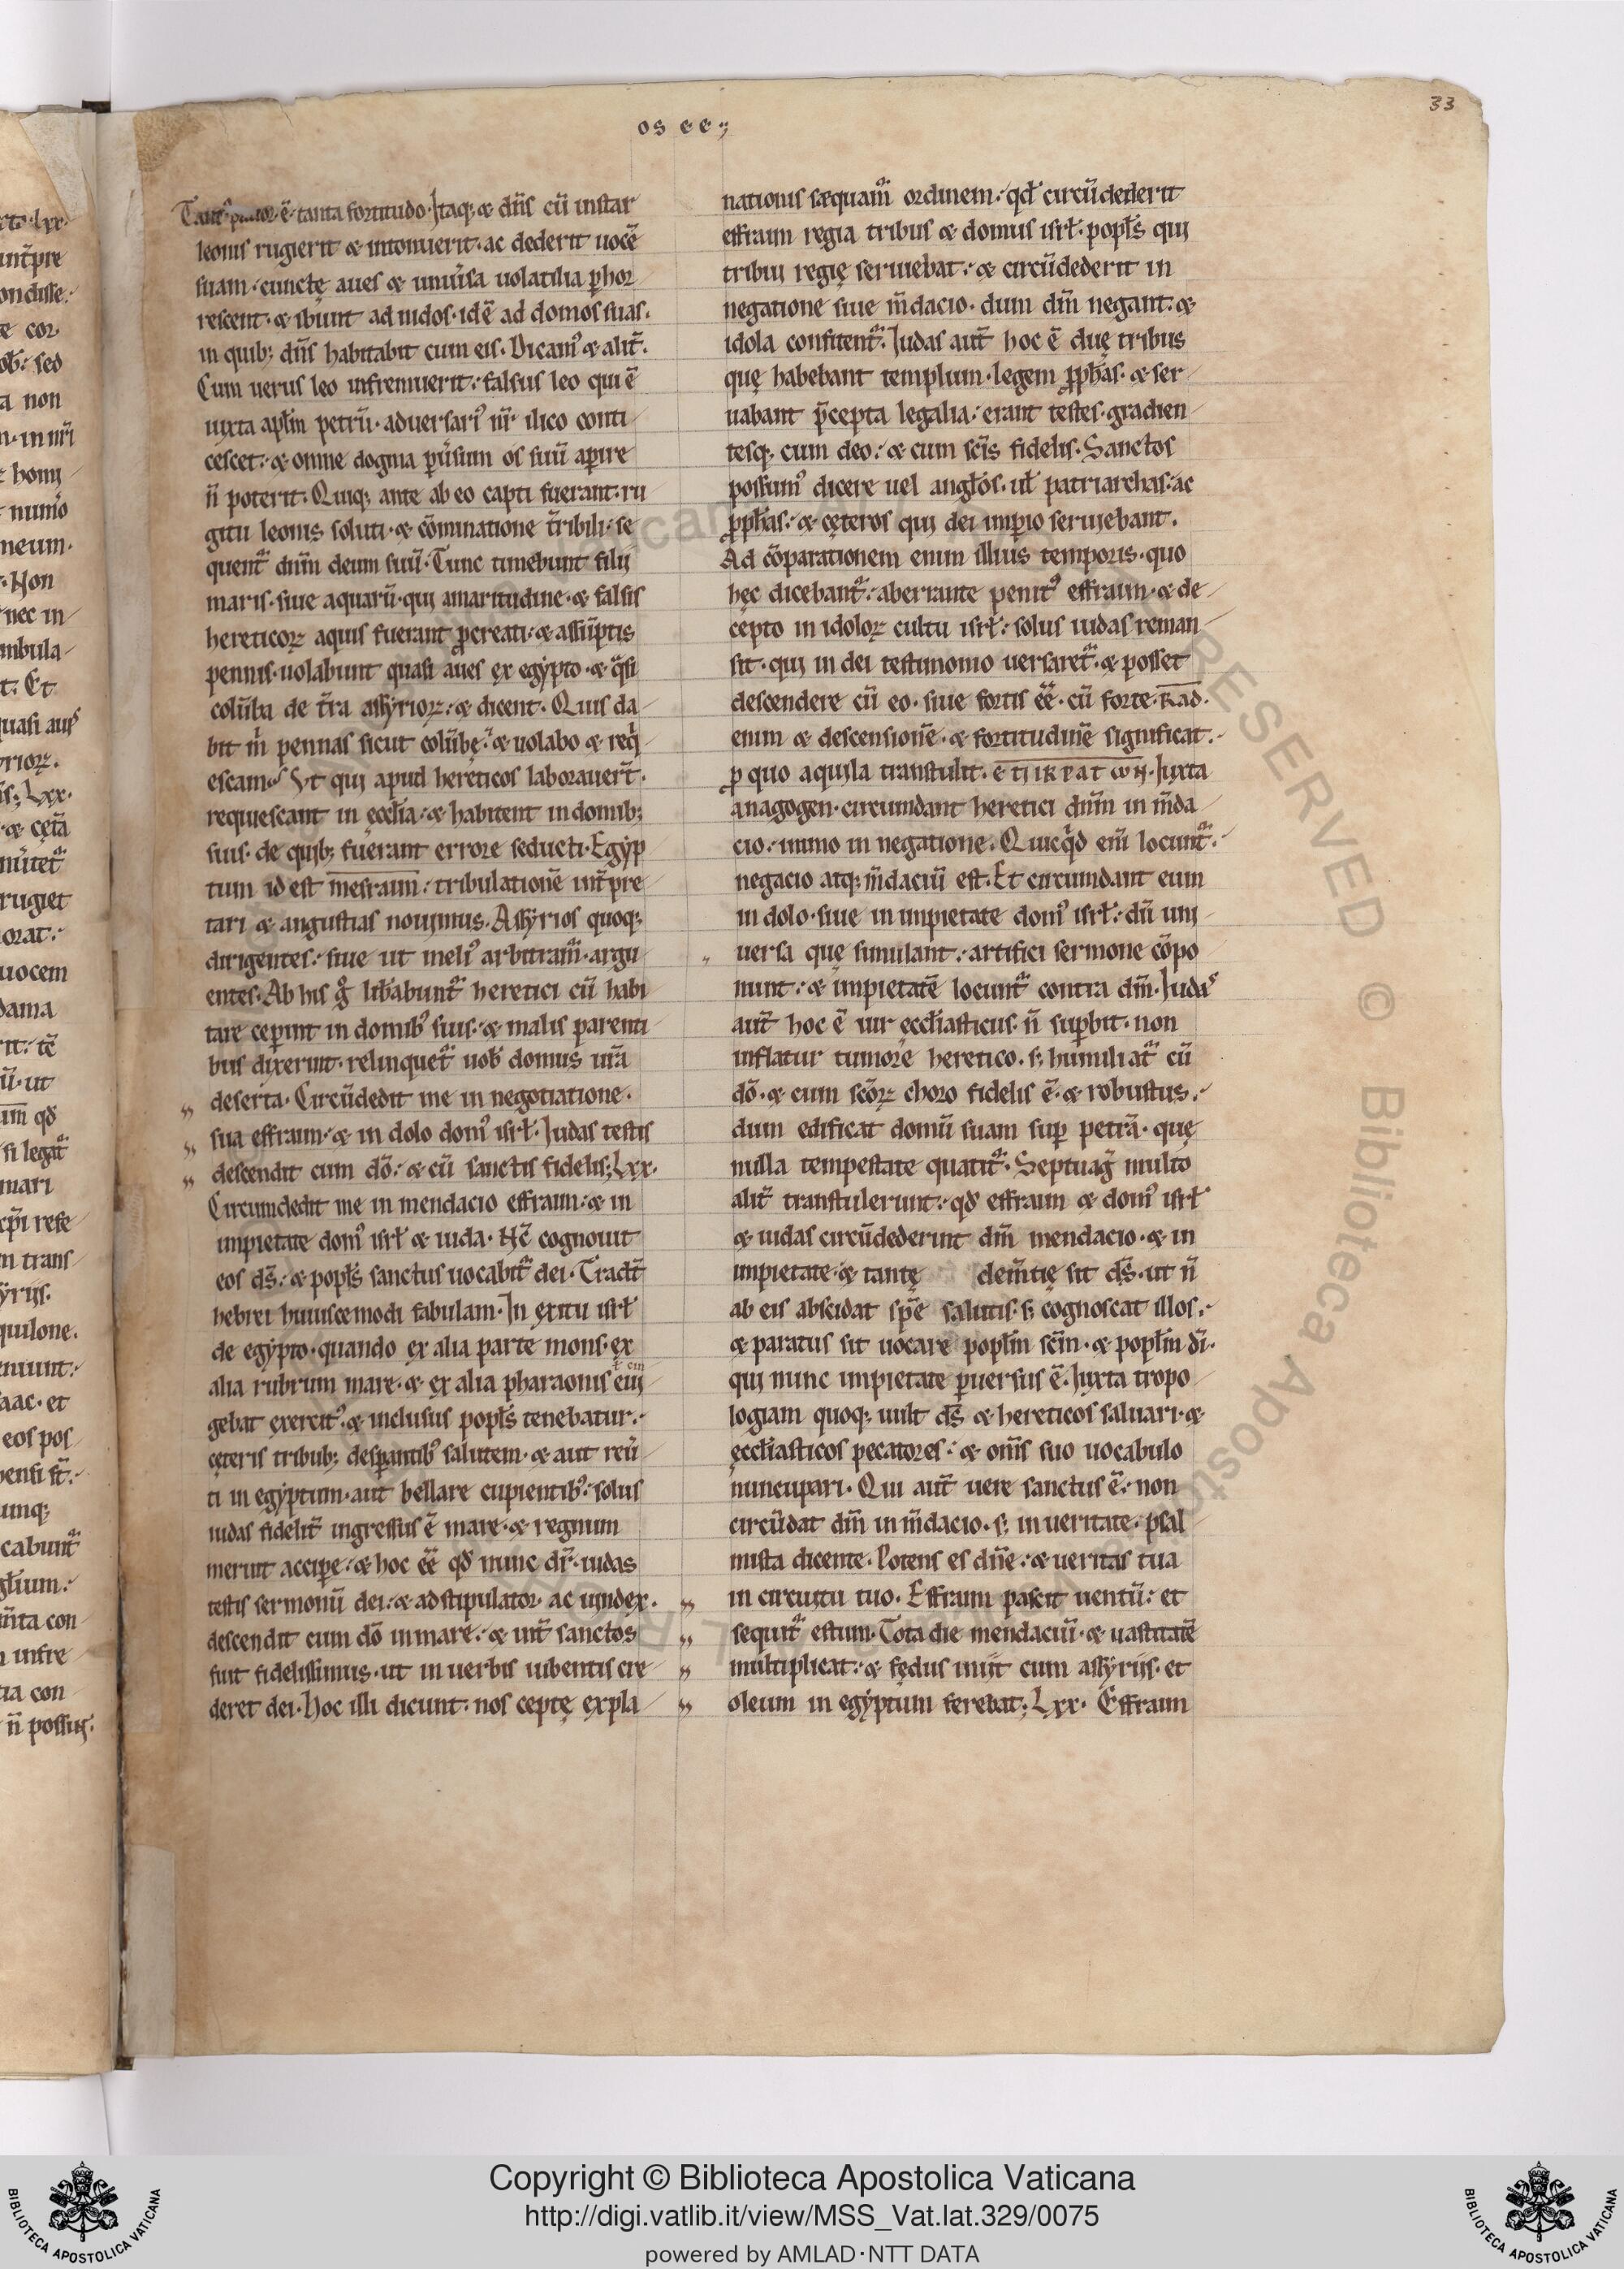 33
os ee;
tanta fortitudo. Itaq; & dn̄s cū instar
leonis rugierit & intonuerit. ac dederit uocē
suam. cunctę aues & uniũsa uolatilia ꝑhor
rescent. & ibunt ad nidos. idē ad domos suas.
in quib; dn̄s habitabit cum eis. Dicamꝰ & alit̃.
Cum uerus leo infremuerit. falsus leo qui ē
iuxta apl̄m petrū. aduersariꝰ nr̄. ilico conti
cescet. & omne dogma ꝑũsum os suū aꝑire
n̄ poterit. Quiq; ante ab eo capti fuerant. ru
gitu leonis soluti. & cōminatione t̃ribili. se
quent̃ dnm̄ deum suū. Tunc timebunt filij
maris. siue aquarū. qui amaritudine. & falsis
hereticoꝝ aquis fuerant ꝓcreati. & assūptis
pennis. uolabunt quasi aues ex egypto. & q̃si
colūba de t̃ra assyrioꝝ. & dicent. Quis da
bit m̍ pennas sicut colūbę. & uolabo & req̍
escam. Ut qui apud hereticos laborauer̄t.
requiescant in ęccl̄ia. & habitent in domib;
suis. de quib; fuerant errore seducti. Egyp
tum id est mesraim. tribulationē int̃pre
tari & angustias nouimus. Assyrios quoq;
dirigentes. siue ut meliꝰ arbitram̃. argu
entes. Ab his g̊ lib̄abunt̃ heretici cū habi
tare ceperint in domibꝰ suis. & malis parenti
bus dixerint. relinquet̃ uob̄ domus ur̄a
deserta. Circūdedit me in negotiatione.
sua effraim. & in dolo domꝰ isrł. Iudas testis
descendit cum dō. & cū sanctis fidelis; Lxx.
Circumdedit me in mendacio effraim. & in
impietate domꝰ isrł & iuda. Nc̄ cognouit
eos ds̄. & popl̄s sanctus uocabit̃ dei. Tradt̄
hebrei huiuscemodi fabulam. In exitu isrł
de egypto. quando ex alia parte mons. ex
ł cin
alia rubrum mare. & ex alia pharaonis eui
gebat exercitꝰ. & inclusus popl̄s tenebatur.
cęteris tribub; desꝑantibꝰ salutem. & aut reũ
ti in egyptum. aut bellare cupientibꝰ. solus
iudas fidelit̃ ingressus ē mare. & regnum
meruit acciꝑe. & hoc eē qd̄ nunc dr̄. iudas
testis sermonū dei. & adstipulator ac uindex.
descendit cum dō in mare. & int̃ sanctos
fuit fidelissimus. ut in uerbis iubentis cre
deret dei. Hoc illi dicunt. nos ceptę expla
nationis sequam̃ ordinem. qd̄ circūdederit
effraim regia tribus & domus isrł. popl̄s qui
tribui regię seruiebat. & circūdederit in
negatione siue m̄dacio. dum dm̄ negant. &
idola confitent̃. Iudas aut̄ hoc ē duę tribus
quę habebant templum. legem ꝓph̄as. & ser
uabant p̄cepta legalia. erant testes. gradien
tesq; cum deo. & cum scīs fidelis. Sanctos
possumꝰ dicere uel angl̄os. ul̄ patriarchas. ac
ꝓph̄as. & cęteros qui dei imꝑio seruiebant.
Ad cōparationem enim illius temporis. quo
hęc dicebant̃. aberrante penitꝰ effraim. & de
cepto in idoloꝝ cultu isrł. solus iudas reman
sit. qui in dei testimonio uersaret̃. & posset
descendere cū eo. siue fortis eē. cū forte. Rad.
enim & descensionē. & fortitudinē significat.
ꝓ quo aquila transtulit. Iuxta
anagogen. circumdant heretici dnm̄ in m̄da
cio. immo in negatione. Quicq̍d em̄ locunt̃.
negacio atq; m̄daciū est. Et circumdant eum
in dolo. siue in impietate domꝰ isrł. dū uni
uersa quę simulant. artifici sermone cōpo
nunt. & impietatē locunt̃ contra dm̄. Iudas
aut̄ hoc ē uir ęccl̄iasticus. n̄ suꝑbit. non
inflatur tumore heretico. s; humiliat̃ cū
dō. & cum scōꝝ choro fidelis ē. & robustus.
dum edificat domū suam suꝑ petrā. quę
nulla tempestate quatit̃. Septuag̃ multo
alit̃ transtulerunt. qd̄ effraim & domꝰ isrł
& iudas circūdederint dm̄ mendacio. & in
impietate. & tantę dem̄tię sit ds̄. ut n̄
ab eis abscidat spē salutis. s; cognoscat illos.
& paratus sit uocare popl̄m scm̄. & popl̄m dī.
qui nunc impietate ꝑuersus ē. Iuxta tropo
logiam quoq; uult ds̄ & hereticos saluari. &
ęccl̄iasticos pecatores. & om̄s suo uocabulo
nuncupari. Qui aut̄ uere sanctus ē. non
circūdat dm̄ in m̄dacio. s; in ueritate. psal
mista dicente. Potens es dn̄e. & ueritas tua
in circuitu tuo. Effraim pascit uentū. et
sequit̃ estum. Tota die mendaciū. & uastitatē
multiplicat. & fędus iniit cum assyriis. et
oleum in egyptum ferebat; Lxx. Effraim
Copyright © Biblioteca Apostolica Vaticana
http://digi.vatlib.it/view/MSS_Vat.lat.329/0075
powered by AMLAD·NTT DATA
BIBLIOTECA APOSTOLICA VATICANA
BIBLIOTECA APOSTOLICA VATICANA